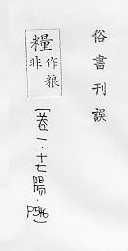 俗書刊誤
糧
作粮
非
〔卷一·十七陽·P546〕